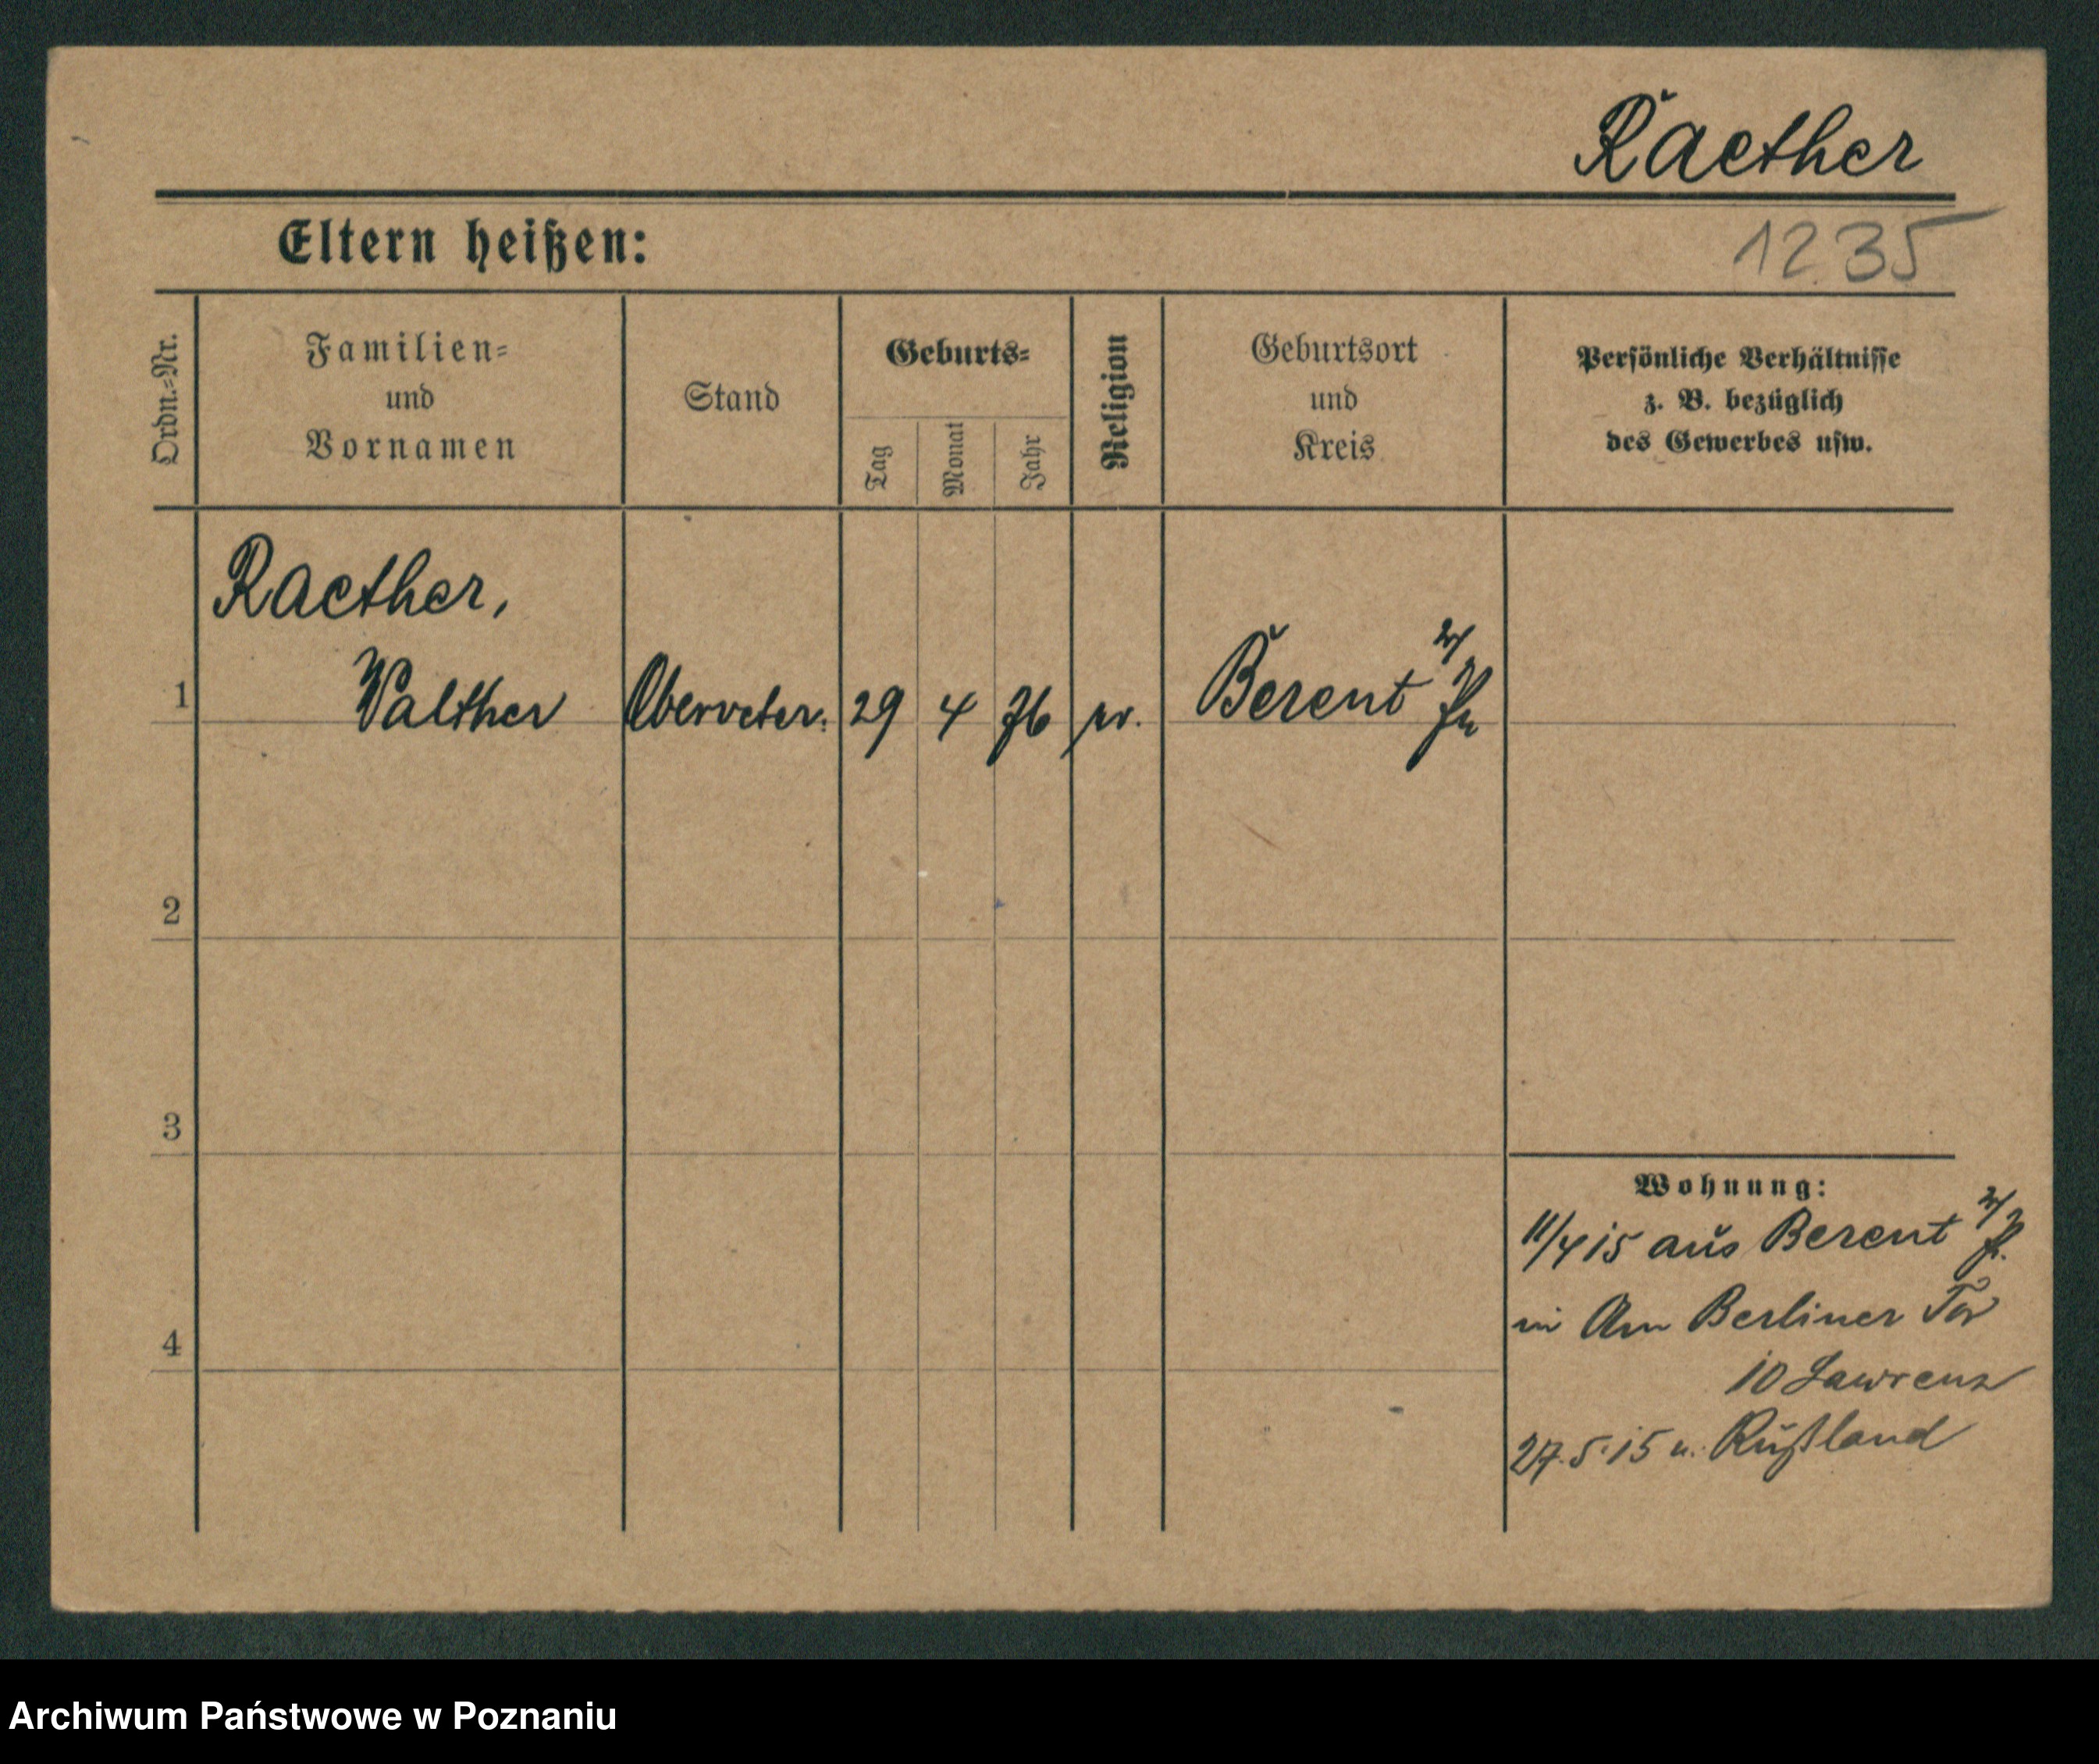 Raether
1235
Eltern heißen:
Ordn.-Nr.
Familien-
und
Vornamen
Stand
Geburts-
Tag
Monat
Jahr
Religion
Geburtsort
und
Kreis
Persönliche Verhältnisse
z. B. bezüglich
des Gewerbes usw.
Raether,
1 Walther Oberveter. 29 4 76 Berent W/Pr
2
3
4
Wohnung:
11/4 15 aus Berent W/Pr.
in Am Berliner Tor
10 Lawrenz
27.5.15 n. Rußland
Archiwum Państwowe w Poznaniu